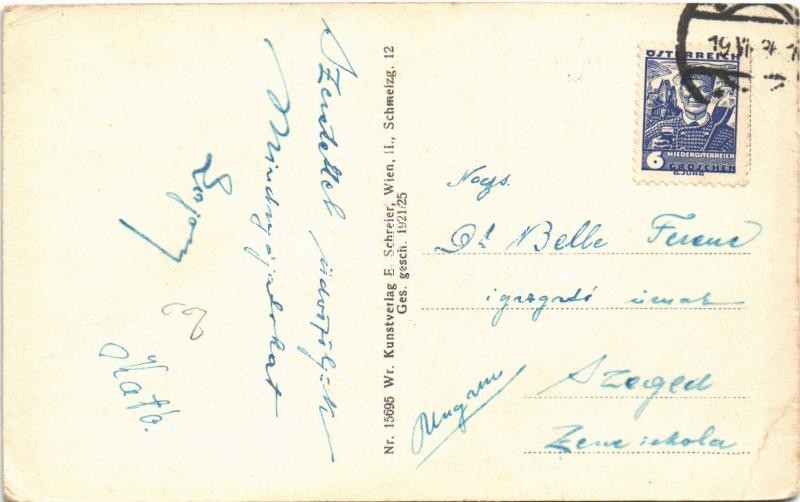 Szeretettel üdvözöljük
Mindnyájukat
Kató.
22
Nr. 15695 Wr. Kunstverlag E. Schreier, Wien, II., Schmelzg. 12
Ges. gesch. 1921/25
19 VI 36
ÖSTERREICH
6 NIEDERÖSTERREICH
GROSCHEN
G. JUNG
Nags.
Dr. Belle Ferenc
igazgató úrnak
Szeged
Zeneiskola
Ungarn